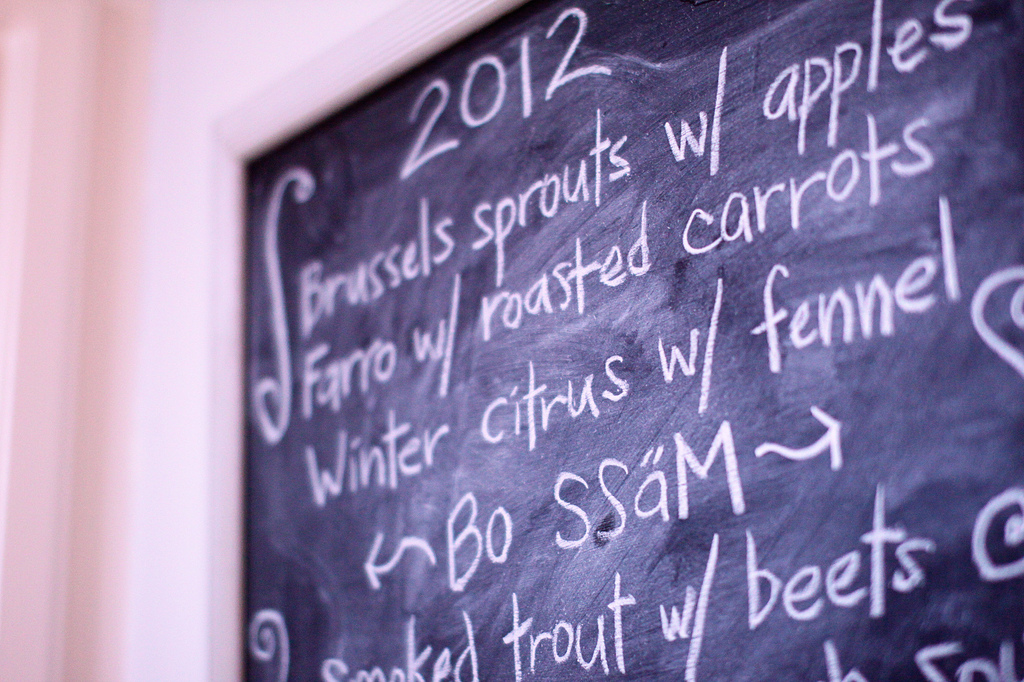 2012
Brussels sprouts w/ apples
Farro w/ roasted carrots
Winter citrus w/ fennel
← Bo SSäM →
smoked trout w/ beets